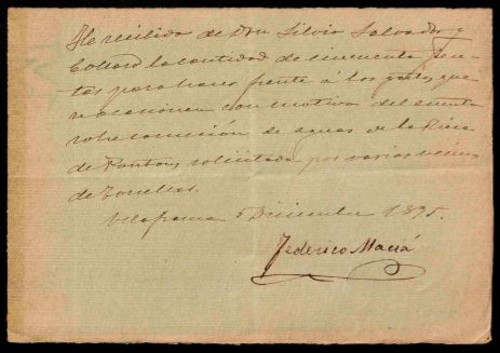 He recibido de Don Silvio Salvador y
la cantidad de cincuenta pese-
tas para hacer frente á los gastos que
se ocasionen con motivo del asunto
sobre concesión de aguas de la Riera
de Pontons, solicitada por varios vecinos
de Torrellas.
Vilafranca 5 Diciembre 1895.
Federico Maciá